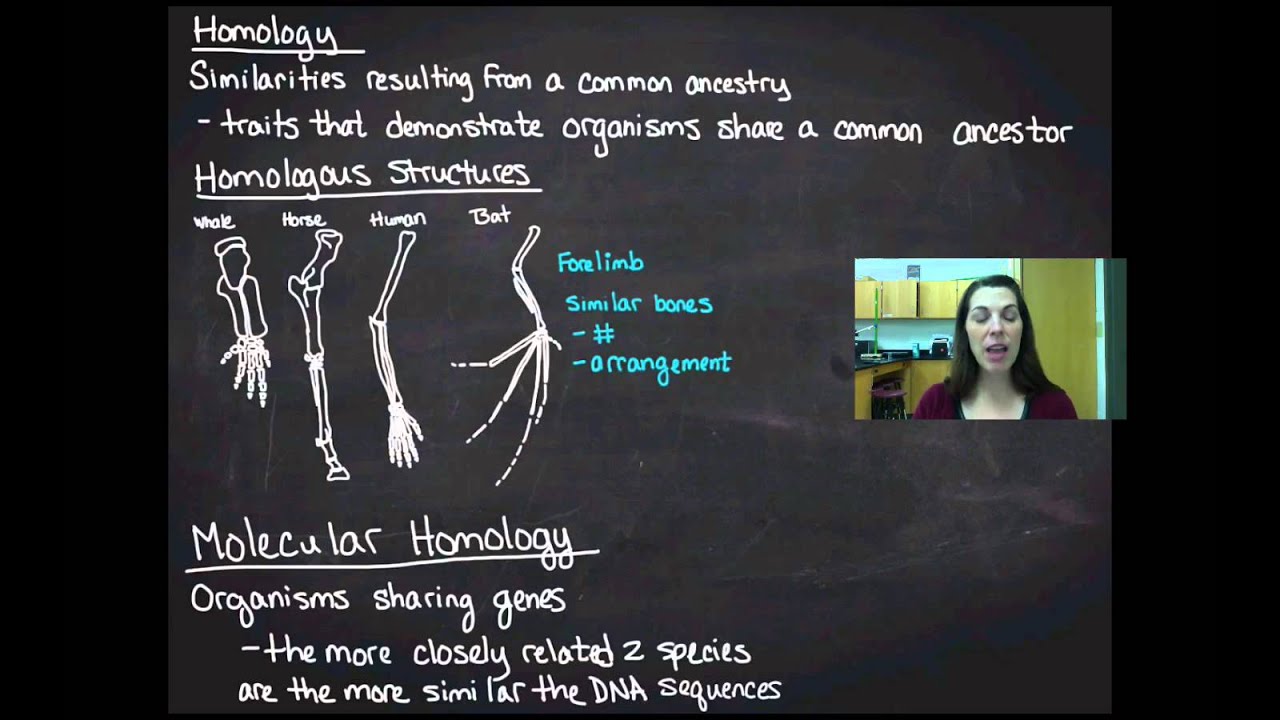 Homology
Similarities resulting from a common ancestry
- traits that demonstrate organisms share a common ancestor
Homologous Structures
Whale Horse Human Bat
Forelimb
Similar bones
- #
- arrangement
Molecular Homology
Organisms sharing genes
- the more closely related 2 species
are the more similar the DNA sequences